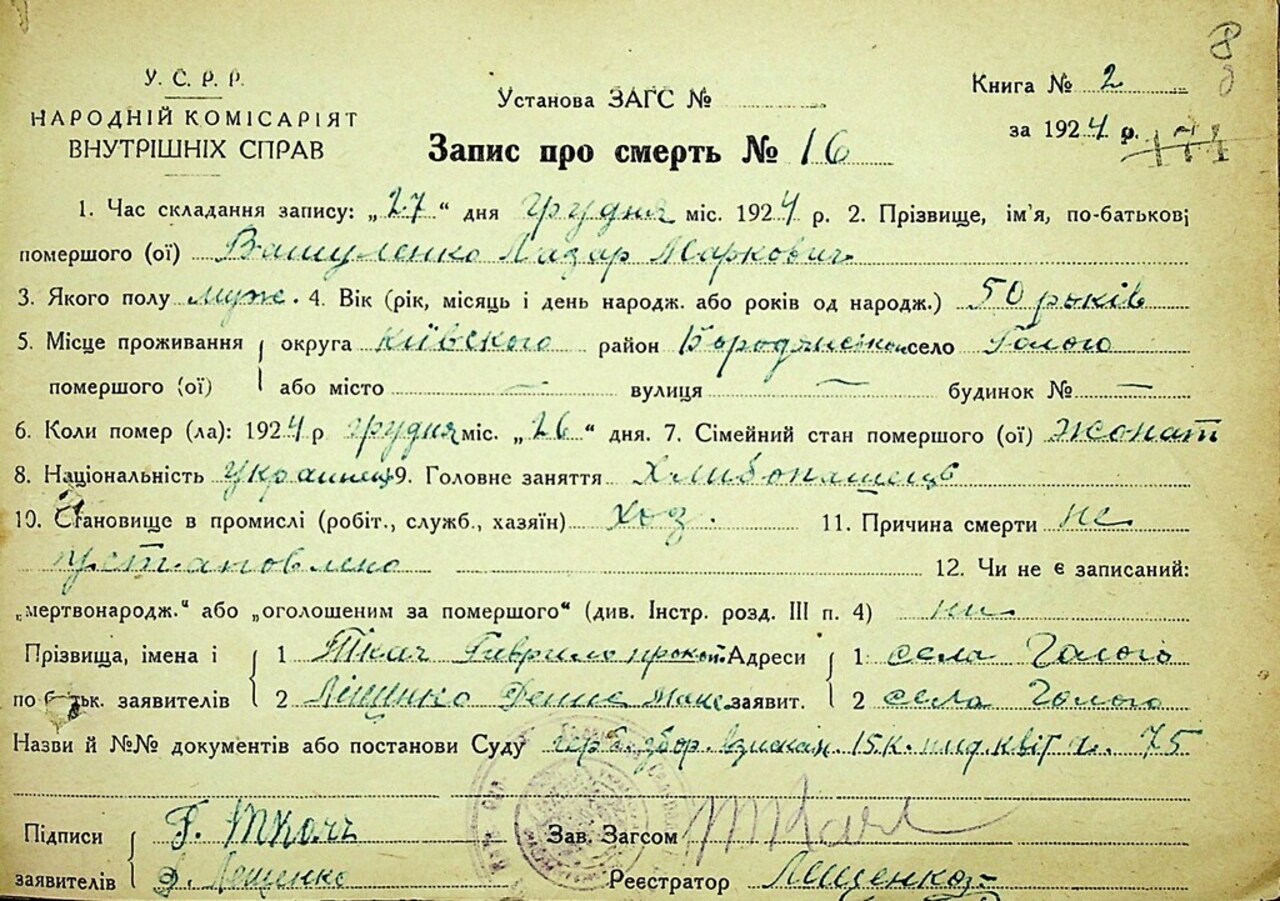 8
У. С. Р. Р.
НАРОДНІЙ КОМІСАРІЯТ
ВНУТРІШНІХ СПРАВ
Установа ЗАГС №
Книга № 2
за 1924 р. 174
Запис про смерть № 16
1. Час складання запису: „27“ дня грудня міс. 1924 р. 2. Прізвище, ім'я, по-батькові
помершого (ої) Вашуленко Лазар Маркович
3. Якого полу муж. 4. Вік (рік, місяць і день народж. або років од народж.) 50 років
5. Місце проживання округа київского район село Голого
помершого (ої) або місто — вулиця — будинок № —
6. Коли помер (ла): 1924 р грудня міс. „26“ дня. 7. Сімейний стан помершого (ої) жонат
8. Національність украинец 9. Головне заняття Хлибопашець
10. Становище в промислі (робіт., служб., хазяїн) хоз. 11. Причина смерти не
установлено 12. Чи не є записаний:
„мертвонародж.“ або „оголошеним за помершого“ (див. Інстр. розд. III п. 4) ни
Прізвища, імена і 1 Ткач Гаврило прокоп. Адреси 1 села Голого
по батьк. заявителів 2 Лещенко Денис заявит. 2 села Голого
Назви й №№ документів або постанови Суду герб. збор. взискан. 15 к. пид квіт 75
Підписи Г. Ткачь Зав. Загсом Ткач
заявителів Д. Лещенко Реєстратор Лещенко